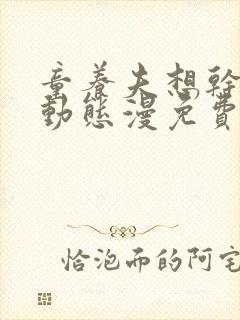 童養夫想幹
動態漫免費
恰泡而的阿宅